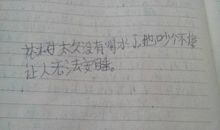 太久没有喝水了，他吵个不停
让人无法安睡。